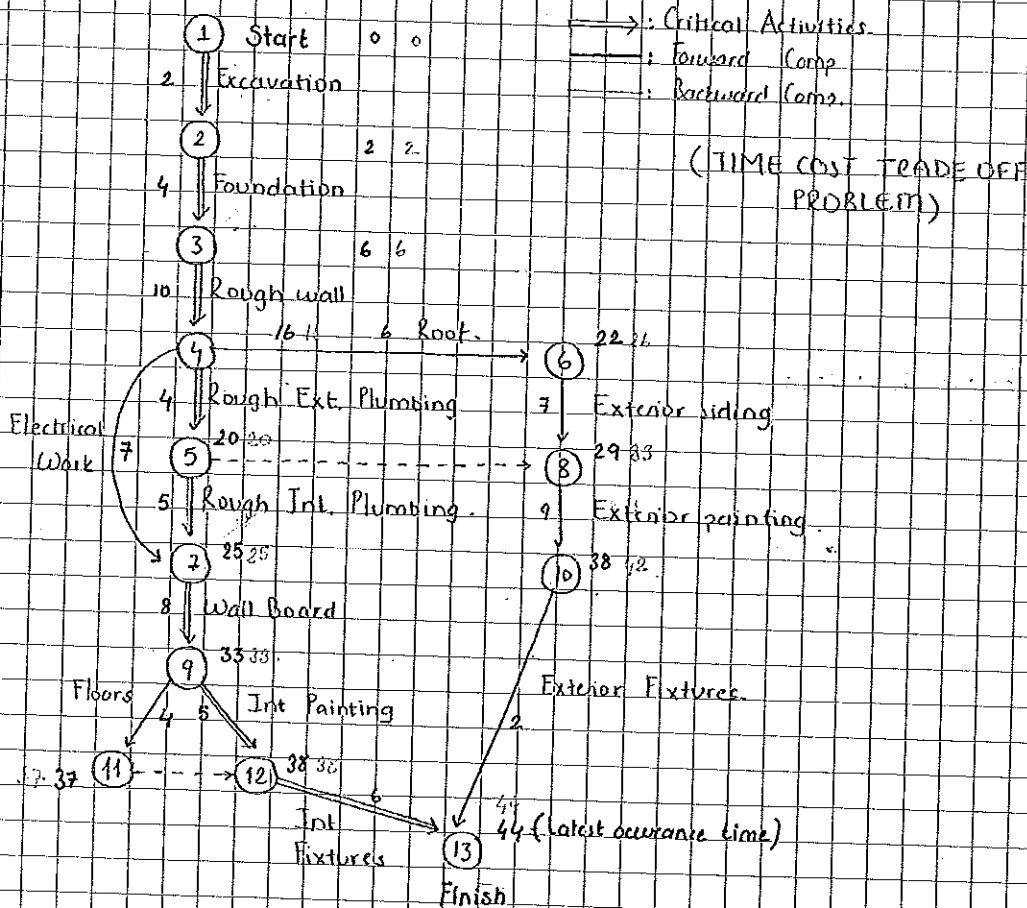 1 Start 0 0
: Critical Activities.
: Forward Comp
: Backward Comp.
2 Excavation
2 2 2
(TIME COST TRADE OFF
PROBLEM)
4 Foundation
3 6 6
10 Rough wall
4 16 6 Roof. 6 22
4 Rough Ext. Plumbing 7 Exterior siding
Electrical
Work 7
5 20 20 8 29 33
5 Rough Int. Plumbing. 9 Exterior painting.
7 25 25 10 38 42
8 Wall Board
9 33 33
Floors 4 5 Int Painting
Exterior Fixtures.
2
37 11 12 38 38
6
Int
Fixtures
44
44 (latest occurance time)
13
Finish